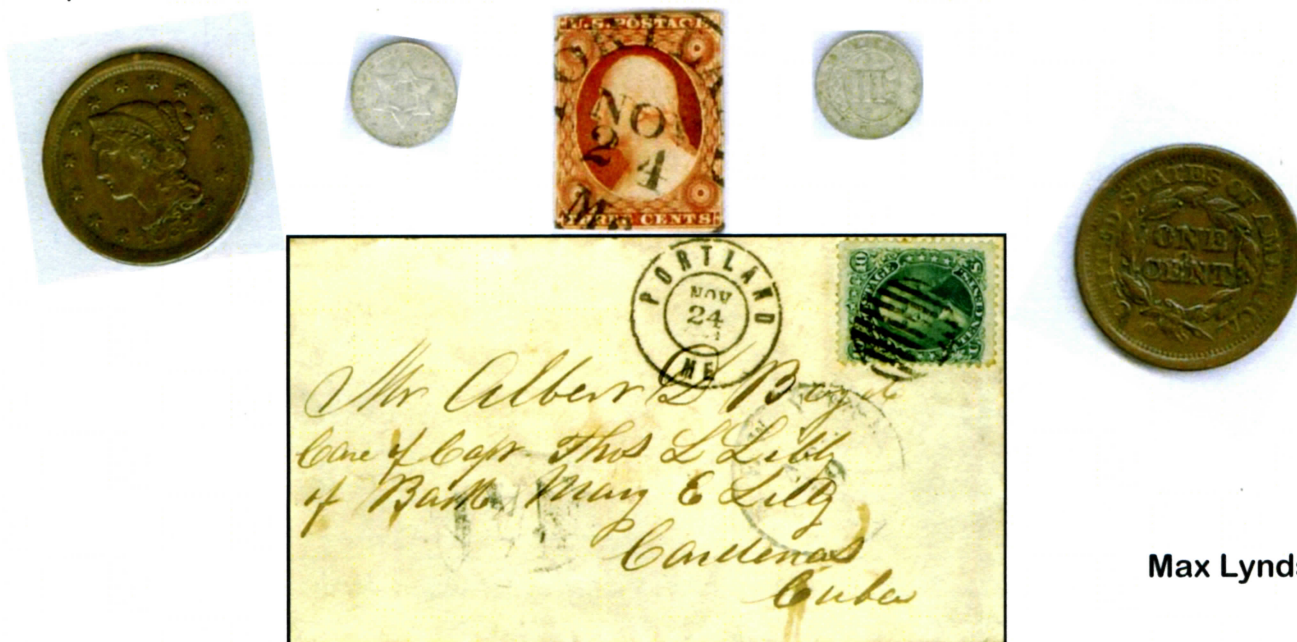 U.S. POSTAGE
NOV
24
THREE CENTS
III
UNITED STATES OF AMERICA
ONE
CENT
PORTLAND
NOV
24
ME
Mr Albert L Boyd
Care of Capt Thos L Libby
of Bark Mary E Libby
Cardenas
Cuba
Max Lynds